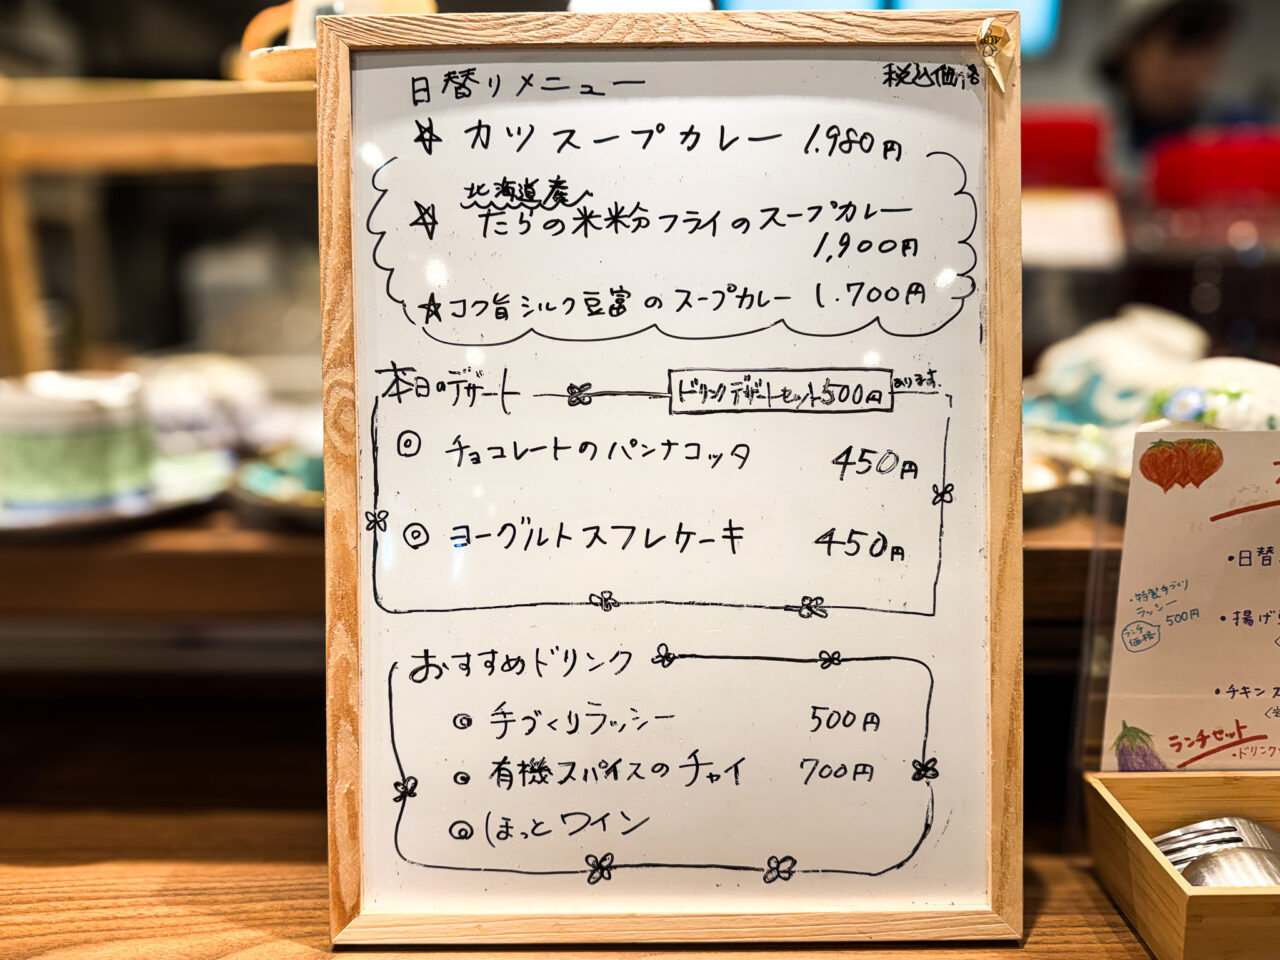 日替りメニュー 税込価格
☆ カツスープカレー 1.980円
北海道産
☆ たらの米粉分フライのスープカレー
1,900円
☆コク旨シルク豆富のスープカレー 1.700円
本日のデザート ドリンクデザートセット500円 あります。
◎ チョコレートのパンナコッタ 450円
◎ ヨーグルトスフレケーキ 450円
おすすめドリンク
◎ 手づくりラッシー 500円
◎ 有機スパイスのチャイ 700円
◎ ほっとワイン
・日替
・特製手づくり
ラッシー
ランチ価格 500円
・揚げ
・チキンス
ランチセット
・ドリンク